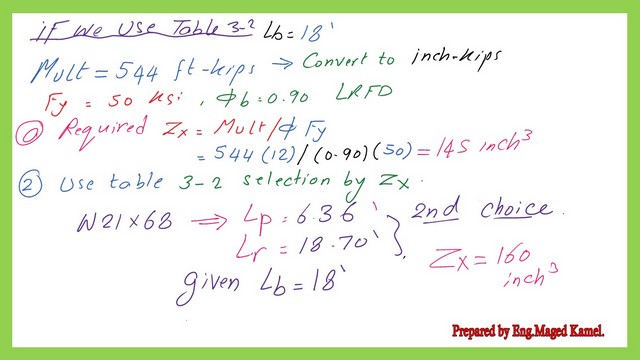 if we use Table 3-2 Lb = 18'
Mult = 544 ft-kips → Convert to inch-kips
Fy = 50 ksi, Φb = 0.90 LRFD
① Required Zx = Mult/Φ Fy
= 544 (12) / (0.90) (50) = 145 inch³
② Use table 3-2 selection by Zx.
W21x68 ⇒ Lp = 6.36' } 2nd choice.
Lr = 18.70'
Zx = 160 inch³
given Lb = 18'
Prepared by Eng.Maged Kamel.